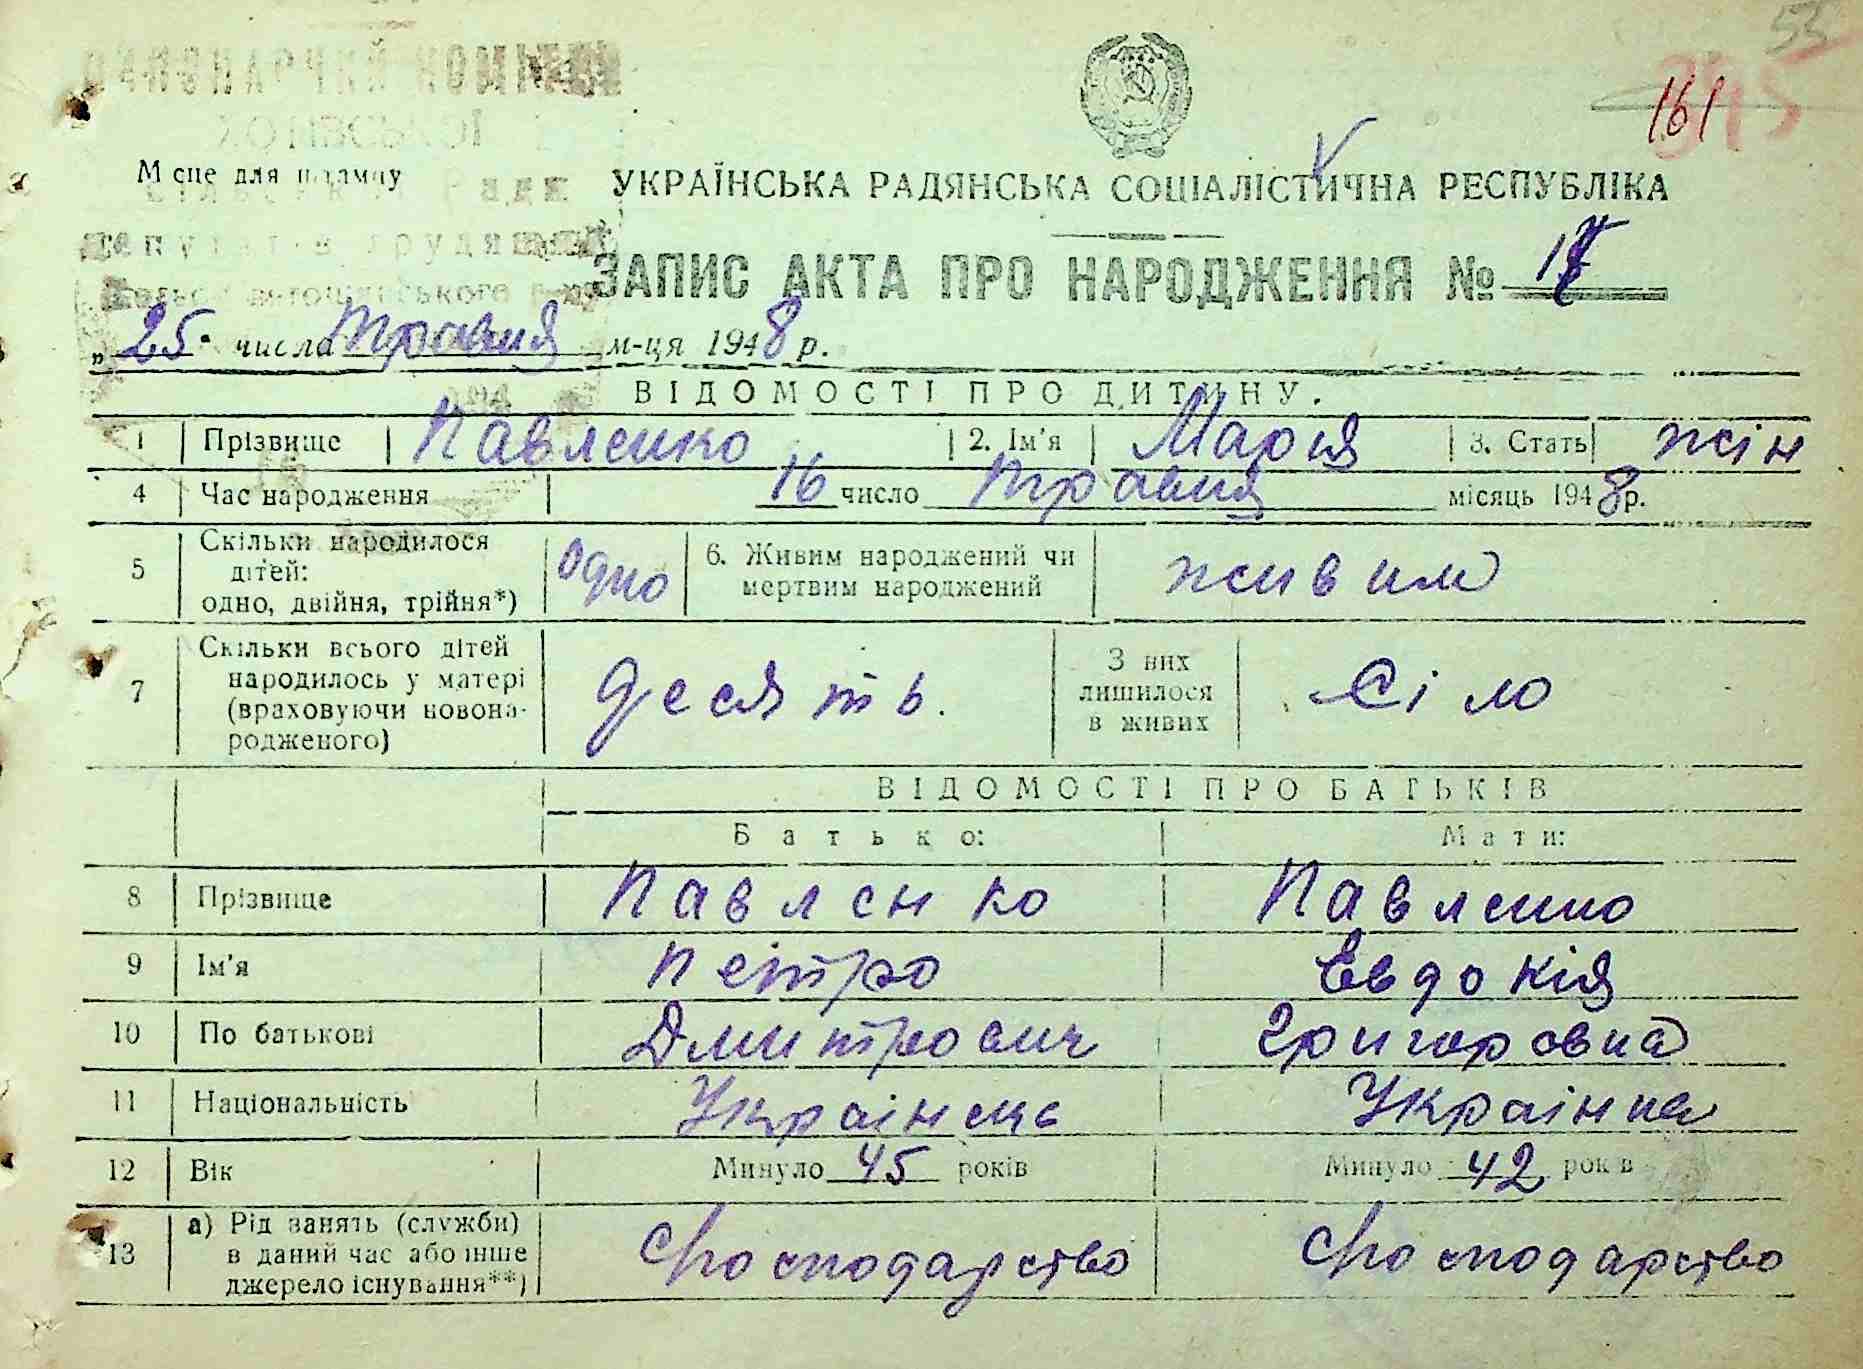 55
161
Місце для штампу
УКРАЇНСЬКА РАДЯНСЬКА СОЦІАЛІСТИЧНА РЕСПУБЛІКА
ЗАПИС АКТА ПРО НАРОДЖЕННЯ № 17
„25" числа травня м-ця 1948 р.
ВІДОМОСТІ ПРО ДИТИНУ.
1 Прізвище Павленко 2. Ім'я Марія 3. Стать жін
4 Час народження 16 число травня місяць 1948 р.
5 Скільки народилося дітей: одно, двійня, трійня*) Одно 6. Живим народжений чи мертвим народжений живим
7 Скільки всього дітей народилось у матері (враховуючи новонародженого) десять. З них лишилося в живих
ВІДОМОСТІ ПРО БАТЬКІВ
Батько: Мати:
8 Прізвище Павленко Павленко
9 Ім'я Петро Евдокія
10 По батькові Дмитрович Григоровна
11 Національність Украінець Украінка
12 Вік Минуло 45 років Минуло 42 років
13 а) Рід занять (служби) в даний час або інше джерело існування**) господарство господарство